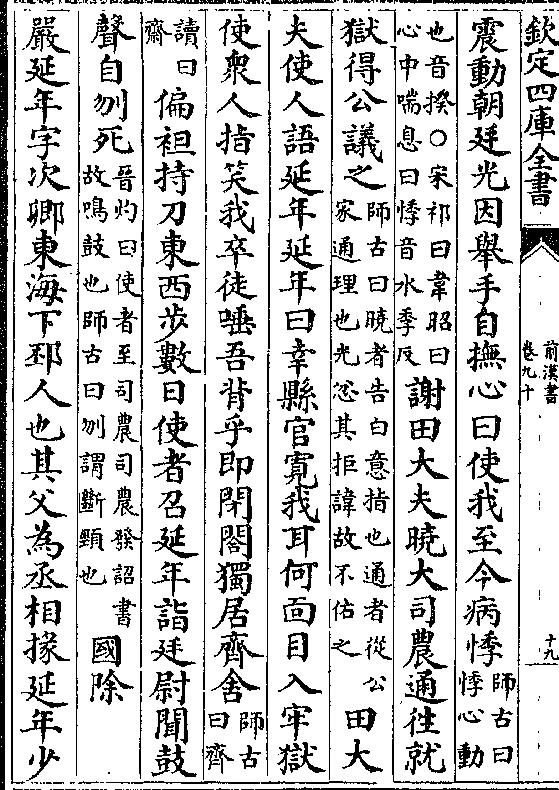 欽定四庫全書
前漢書
卷九十
十九
震動朝廷光因舉手自撫心曰使我至今病悸師古曰悸心動
也音揆○宋祁曰韋昭曰心中喘息曰悸音水季反謝田大夫曉大司農通往就
獄得公議之師古曰曉者告白意指也通者從公家通理也光忿其拒諱故不佑之田大
夫使人語延年延年曰幸縣官寬我耳何面目入牢獄
使衆人指笑我卒徒唾吾背乎即閉閤獨居齊舍師古曰齊
讀曰齋偏袒持刀東西步數日使者召延年詣廷尉聞鼓
聲自刎死晉灼曰使者至司農司農發詔書故鳴鼓也師古曰刎謂斷頸也國除
嚴延年字次卿東海下邳人也其父為丞相掾延年少